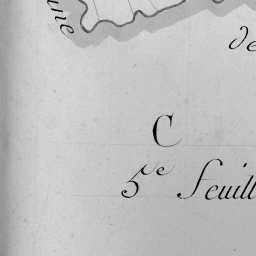 une
de
C
5.e Feuill